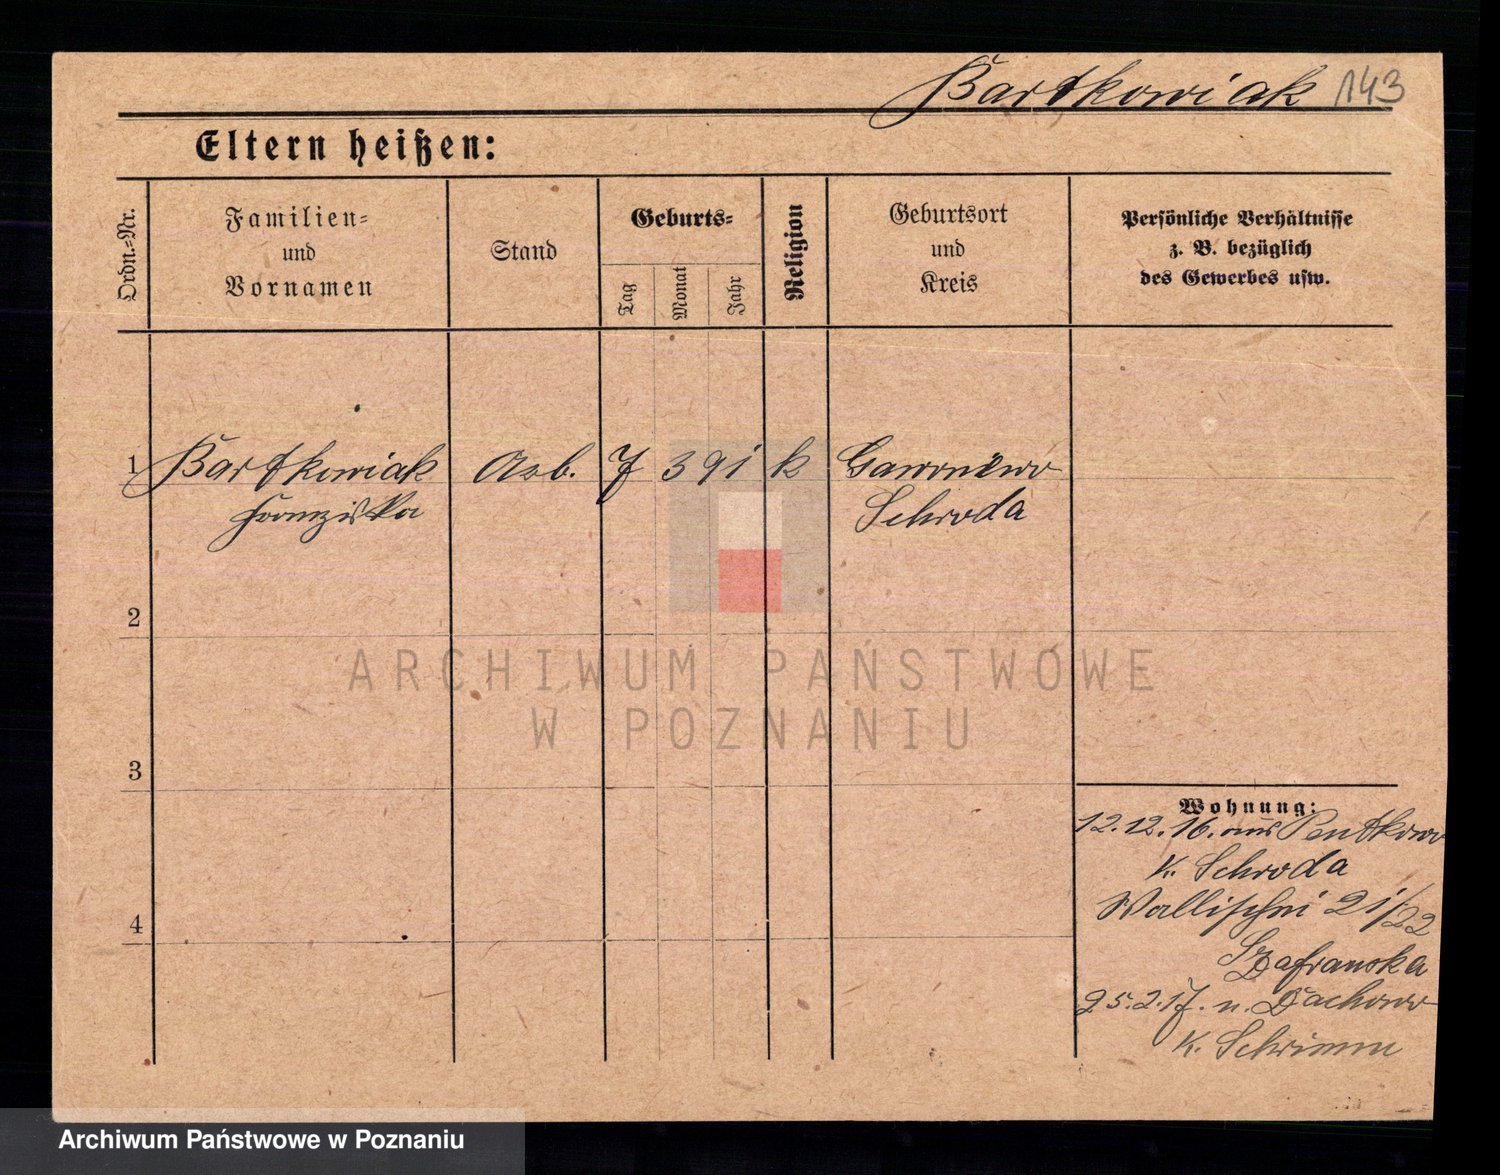 Bartkowiak 143
Eltern heißen:
Ordn.=Nr.
Familien=
und
Vornamen
Stand
Geburts=
Tag
Monat
Jahr
Religion
Geburtsort
und
Kreis
Persönliche Verhältnisse
z. B. bezüglich
des Gewerbes usw.
1 Bartkowiak Arb. 7 3 91 k
Franziska Schroda
2
3
4
Wohnung:
12.12.16. aus Pentkowo
K. Schroda
Wallischei 21/22
Szafranska
25.2.17. n. Dachowo
K. Schrimm
ARCHIWUM PAŃSTWOWE
W POZNANIU
Archiwum Państwowe w Poznaniu